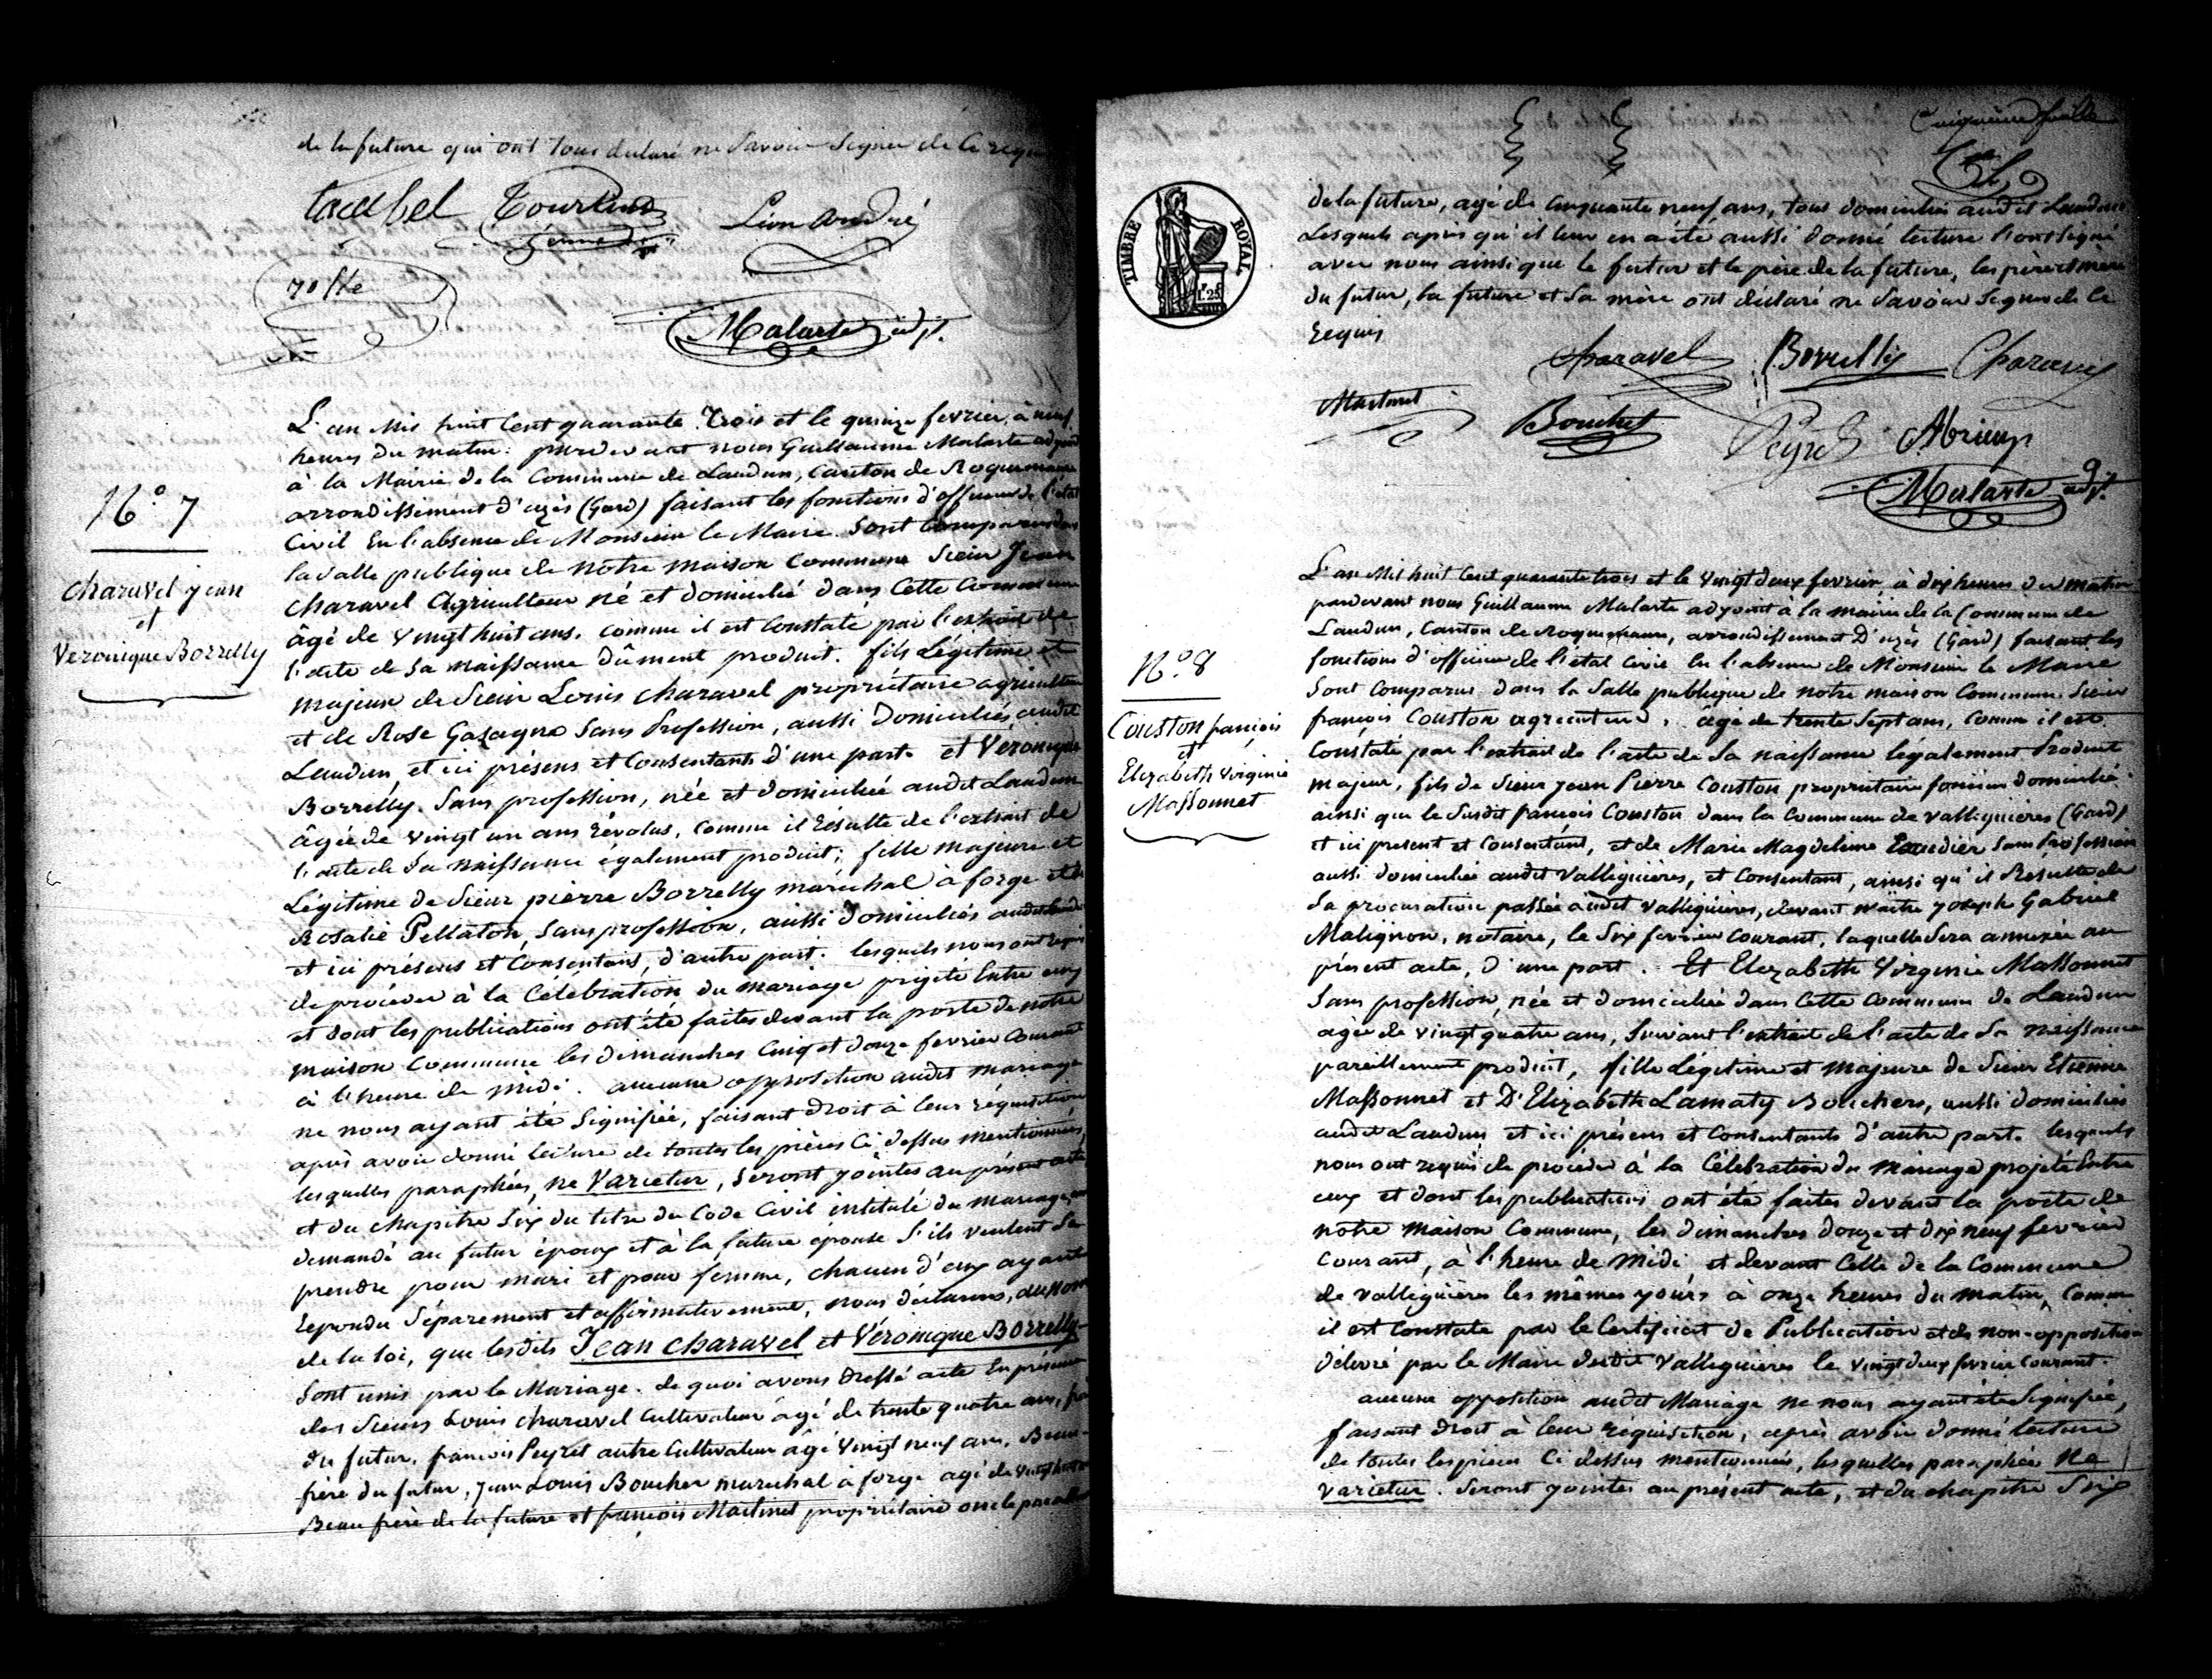 de la future qui ont tous déclaré ne savoir signer de ce requis
Léon André
Malarte adjt.
N.° 7
Charavel jean
et
Veronique Borrelly
L'an Mil huit cent quarante trois et le quinze fevrier, à neuf
heures du matin. pardevant nous Guillaume Malarte adjoint
à la Mairie de la Commune de Laudun, Canton de Roquemaure
arrondissement d'uzès (Gard) faisant les fonctions d'officier de l'état
Civil En l'absence de Monsieur le Maire. Sont comparus dans
la Salle publique de notre maison Commune Sieur Jean
Charavel Agriculteur né et domicilié dans Cette Commune
âgé de vingt huit ans. comme il est Constaté par l'extrait de
l'acte de Sa naissance dûment produit. fils Légitime et
majeur de Sieur Louis Charavel propriétaire agriculteur
et de Rose Gazagne Sans Profession, aussi Domiciliés audit
Laudun, et ici présens et Consentants d'une part. et Véronique
Borrelly. Sans profession, née et domiciliée audit Laudun
âgée de vingt un ans révolus, comme il résulte de l'extrait de
l'acte de Sa naissance également produit; fille majeure et
Légitime de Sieur pierre Borrelly maréchal à forge et de
Rosalie Pellaton, Sans profession, aussi domiciliés audit
et ici présens et Consentans, d'autre part. lesquels nous ont requis
de procéder à la Célébration du mariage projeté Entre eux
et dont les publications ont été faites devant la porte de notre
maison Commune les dimanches Cinq et douze fevrier Courant
à l'heure de midi. aucune opposition audit mariage
ne nous ayant été Signifiée, faisant droit à leur réquisition
après avoir donné lecture de toutes les pièces Ci dessus mentionnées,
lesquelles paraphées, ne Varietur, Seront jointes au présent acte
et du chapitre Six du titre du Code Civil intitulé du Mariage,
demandé au futur époux et à la future épouse S'ils veulent Se
prendre pour mari et pour femme, chacun d'eux ayant
répondu Séparement et affirmativement, nous déclarons, au Nom
de la loi, que lesdits Jean Charavel et Véronique Borrelly
Sont unis par le Mariage. de quoi avons dressé acte En présence
des Sieurs Louis Charavel Cultivateur âgé de trente quatre ans, frère
du futur, françois Peyret autre Cultivateur âgé vingt neuf ans, Beau
frère du futur, jean Louis Boucher marechal à forge agé de
Beau frère de la future et francois Martinet propriétaire oncle
Cinquième feuille
TIMBRE ROYAL
de la future, agé de Cinquante neuf ans, tous domiciliés audit Laudun
Lesquels après qu'il leur en a été aussi donné lecture l'ont signé
avec nous ainsi que le futur et le père de la future, les père et mère
du futur, la future et Sa mère ont déclaré ne Savoir Signer de Ce
Requis
Charavel Borrelly Charavel
Martinet Bouchet Peyret
Malarte adjt.
N.° 8
Couston françois
et
Elizabeth Virginie
Massonnet
L'an Mil huit Cent quarante trois et le vingt deux fevrier, à dix heures du matin
pardevant nous Guillaume Malarte adjoint à la mairie de la Commune de
Laudun, Canton de Roquemaure, arrondissement D'uzès (Gard) faisant les
fonctions d'officier de l'état Civil En l'absence de Monsieur le Maire
Sont Comparus dans la Salle publique de notre maison Commune. Sieur
françois Couston agriculteur, âgé de trente Sept ans, Comme il est
Constaté par l'extrait de l'acte de Sa naissance légalement Produit
majeur, fils de Sieur jean Pierre Couston propriétaire foncier domicilié
ainsi que le Susdit francois Couston dans la Commune de Valliguières (Gard)
et ici présent et Consentant, et de Marie Magdeleine Sans Profession
aussi domiciliée audit Valliguières, et Consentant, ainsi qu'il Résulte de
Sa procuration passée audit Valliguières, devant maître joseph Gabriel
Malignon, notaire, le Six fevrier Courant, laquelle Sera annexée au
présent acte, d'une part. Et Elizabeth Virginie Massonnet
Sans profession, née et domiciliée dans Cette Commune de Laudun
agée de vingt quatre ans, Suivant l'extrait de l'acte de Sa naissance
pareillement produit, fille Légitime et majeure de Sieur Etienne
Massonnet et D'Elizabeth Lamaty Bouchers, aussi domiciliés
audit Laudun et ici présens et Consentants d'autre part. lesquels
nous ont requis de procéder à la Célébration du Mariage projeté Entre
eux et dont les publications ont été faites devant la porte de
notre Maison Commune, les dimanches douze et dix neuf fevrier
Courant, à l'heure de Midi, et devant Celle de la Commune
de Valliguières les mêmes jours à onze heures du matin, Comme
il est Constaté par le Certificat de Publication et de non-opposition
délivré par le Maire dudit Valliguières le vingt deux fevrier Courant.
aucune opposition audit Mariage ne nous ayant été Signifiée,
faisant Droit à leur réquisition, après avoir donné lecture
de toutes les pièces Ci dessus mentionnées, lesquelles paraphées Ne
varietur. Seront jointes au présent acte, et du chapitre Six